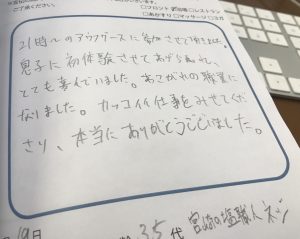 ご了承ください。
□フロント □売店 □レストラン
□あかすり □マッサージ □ヨガ
21時〜のアウフグースに参加させて頂きました。
息子に初体験させてあげられ、
とても喜んでいました。あこがれの職業に
なりました。カッコイイ仕事をみせてくだ
さり、本当にありがとうございました。
19日
35代 宮崎の塩職人